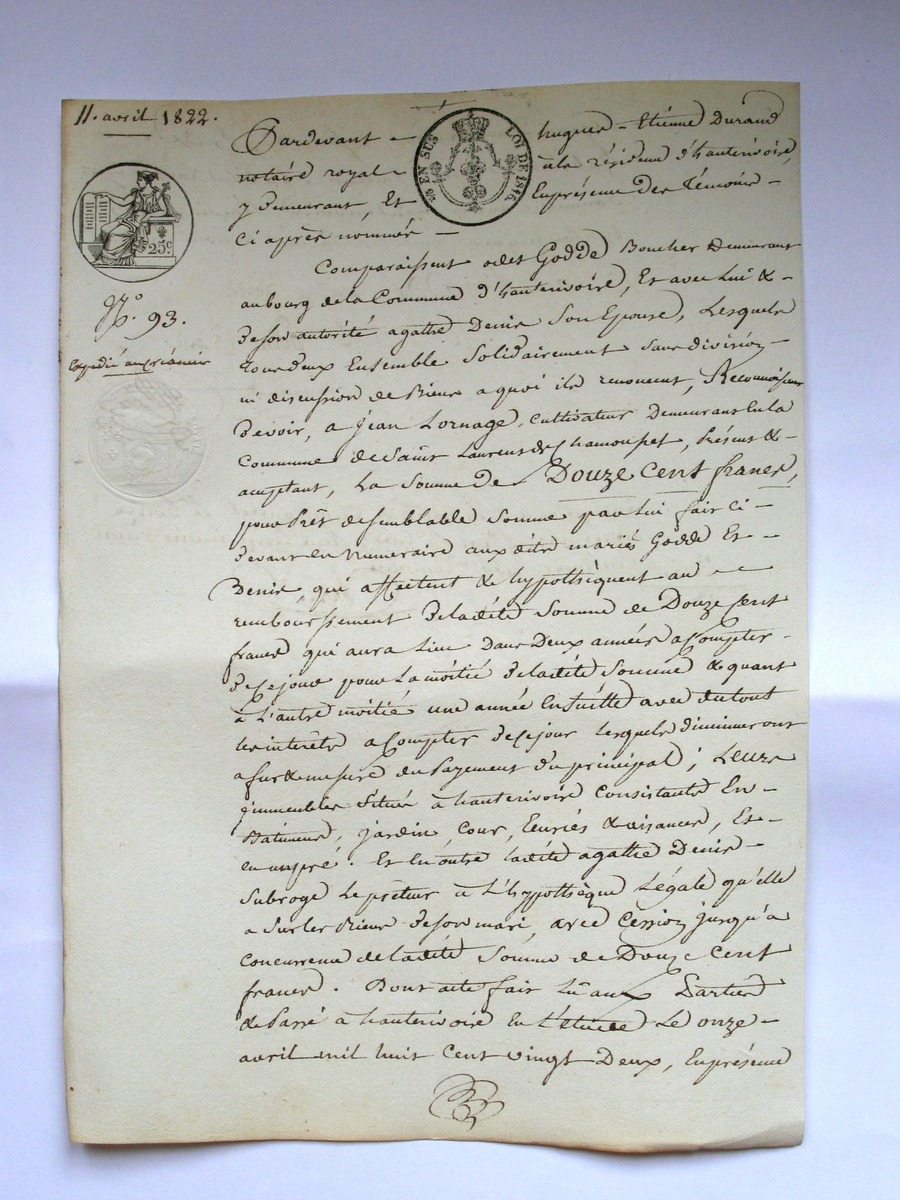 11. avril 1822.
Pardevant - hugues - Etiénne Durand
notaire royal - à la résidence d'hauterivoire,
y Demeurant, Et Enprésence Des témoins -
Ci après nommés -
EN SUS LOI DE 1816
25c.
N.o 93.
Expedié au créancier
Comparaissent odet Godde Boucher Demeurant
aubourg de la Commune d'hauterivoire, Et avec Lui &-
Deson autorité agathe Denis Son Epouse, Lesquels
tous deux Ensemble Solidairement Sans division -
ni discussion de Biens aquoi ils renoncent, Reconnoissent
Devoir, a jean Lornage, cultivateur Demeurant En la
Commune de Saint Laurent de Chamousset, Présent &-
acceptant, La Somme De Douze cent francs,
pour Prêt desemblable Somme par Lui fait ci -
devant en Numeraire aux dits mariés Godde Et -
Denis, qui affectent & hypothèquent au
remboursement De ladite Somme de Douze Cent
francs qui aura Lieu Dans Deux années a Compter -
De Ce jour pour La moitié De ladite Somme & quant
à L'autre moitié une année Ensuitte avec du tout
les intérêts a Compter De Ce jour Lesquels diminueront
a fur & mesure Du Payement Du principal ; Leurs
immeubles Situés à hauterivoire Consistants En -
Batiments, jardin Cour, Ecuries & aisances, Et -
en un pré. Et En outre ladite agathe Denis -
Subroge Le prêteur à L'hypothèque Légale qu'elle
a Sur les Biens Deson mari, avec Cession jusqu'à
Concurrence de ladite Somme de Douze Cent
francs. Dont acte fait Lû aux Parties
& Passé à hauterivoire En L'étude Le onze -
avril mil huit Cent vingt Deux, Enprésence